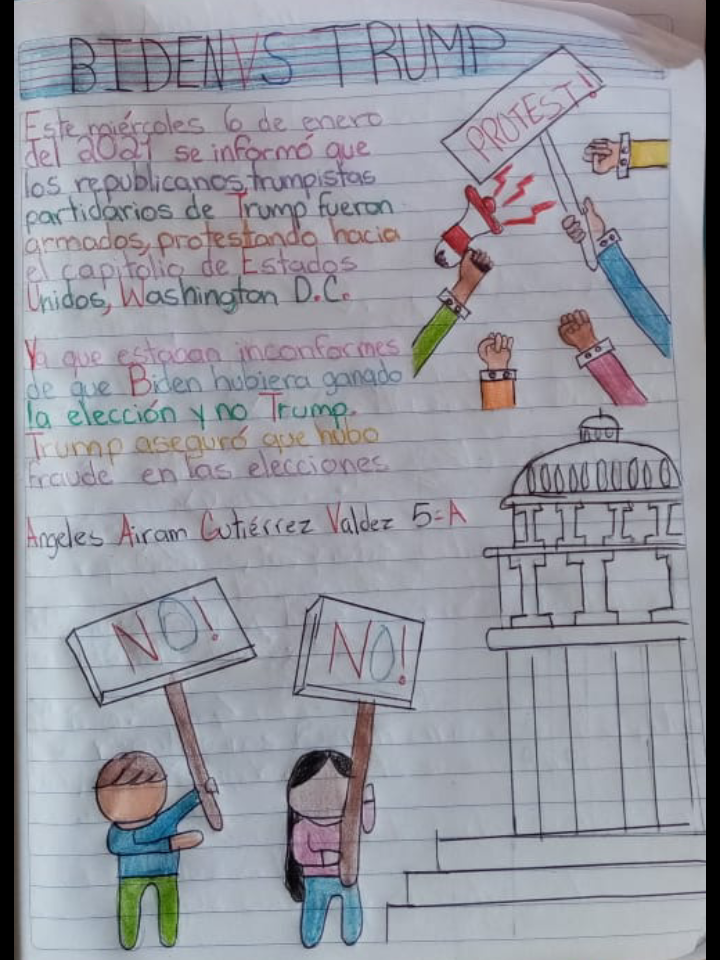 BIDEN VS TRUMP
Este miércoles 6 de enero
del 2021 se informó que
los republicanos, trumpistas
partidarios de Trump fueron
armados, protestando hacia
el capitólio de Estados
Unidos, Washington D.C.
Ya que estacan inconformes
de que Biden hubiera ganado
la elección y no Trump.
Trump aseguró que hubo
fraude en las elecciones
Angeles Airam Gutiérrez Valdez 5=A
PROTEST!
NO!
NO!